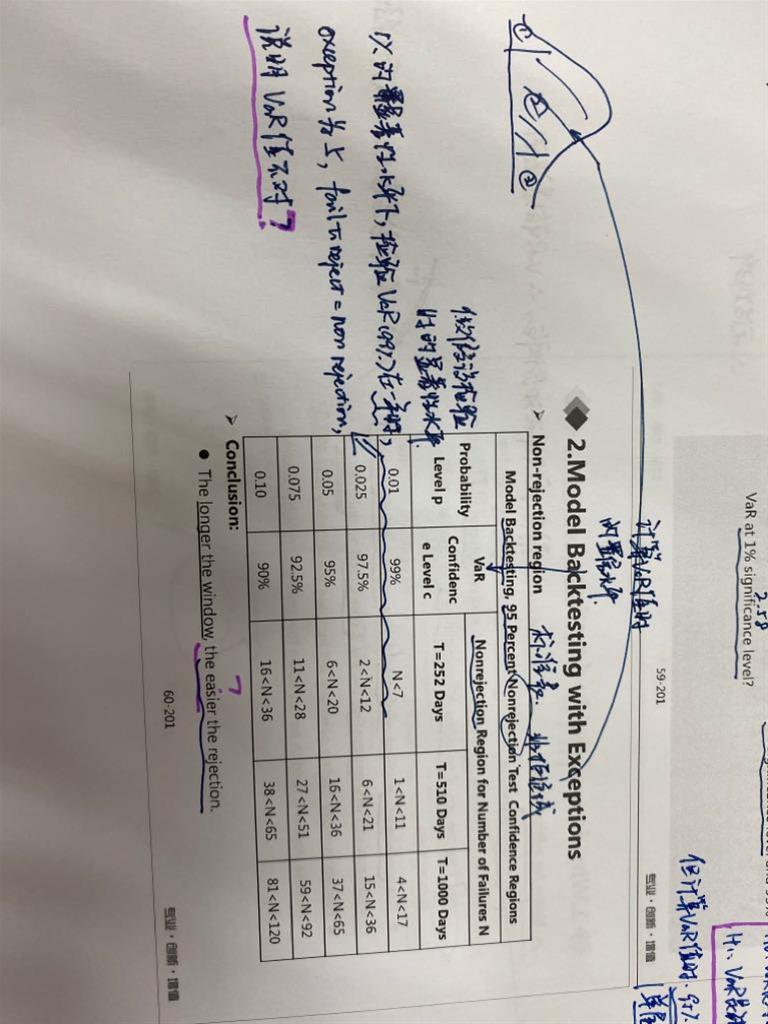 VaR at 1% significance level?
2.58
59-201
专业·创新·增值
计算VaR值时
的置信水平
2.Model Backtesting with Exceptions
Non-rejection region
非拒绝域
Model Backtesting, 95 Percent Nonrejection Test Confidence Regions
Probability Level p | VaR Confidence Level c | Nonrejection Region for Number of Failures N
T=252 Days | T=510 Days | T=1000 Days
0.01 | 99% | N<7 | 1<N<11 | 4<N<17
0.025 | 97.5% | 2<N<12 | 6<N<21 | 15<N<36
0.05 | 95% | 6<N<20 | 16<N<36 | 37<N<65
0.075 | 92.5% | 11<N<28 | 27<N<51 | 59<N<92
0.10 | 90% | 16<N<36 | 38<N<65 | 81<N<120
Conclusion:
The longer the window, the easier the rejection.
?
60-201
专业·创新·增值
做假设检验
时的显著性水平
的显著性水平下,检验VaR(99%)在一年时,
exception为5, fail to reject = non rejection,
说明VaR值不对?
① ② ③
但计算VaR值时,95%